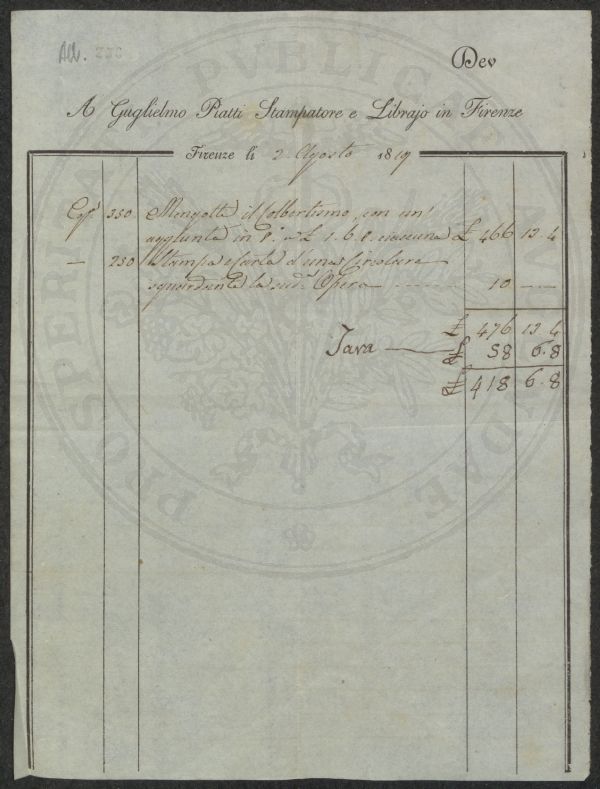 Acc. 220
Dev
A Guglielmo Piatti Stampatore e Librajo in Firenze
Firenze li 2. Agosto 1819
Cop.e 350 Mengotti il Colbertismo, con un'
aggiunta in 8.º a £ 1. 6. 8. ciascuna £ 466 13. 4
— 250 Stampa e carta d'una Circolare
riguardante la sud.a Opera ------ 10 — —
£ 476 13. 4
Tara — £ 58 6. 8
£ 418 6. 8
PROSPERITATI PVBLICAE AVGENDAE